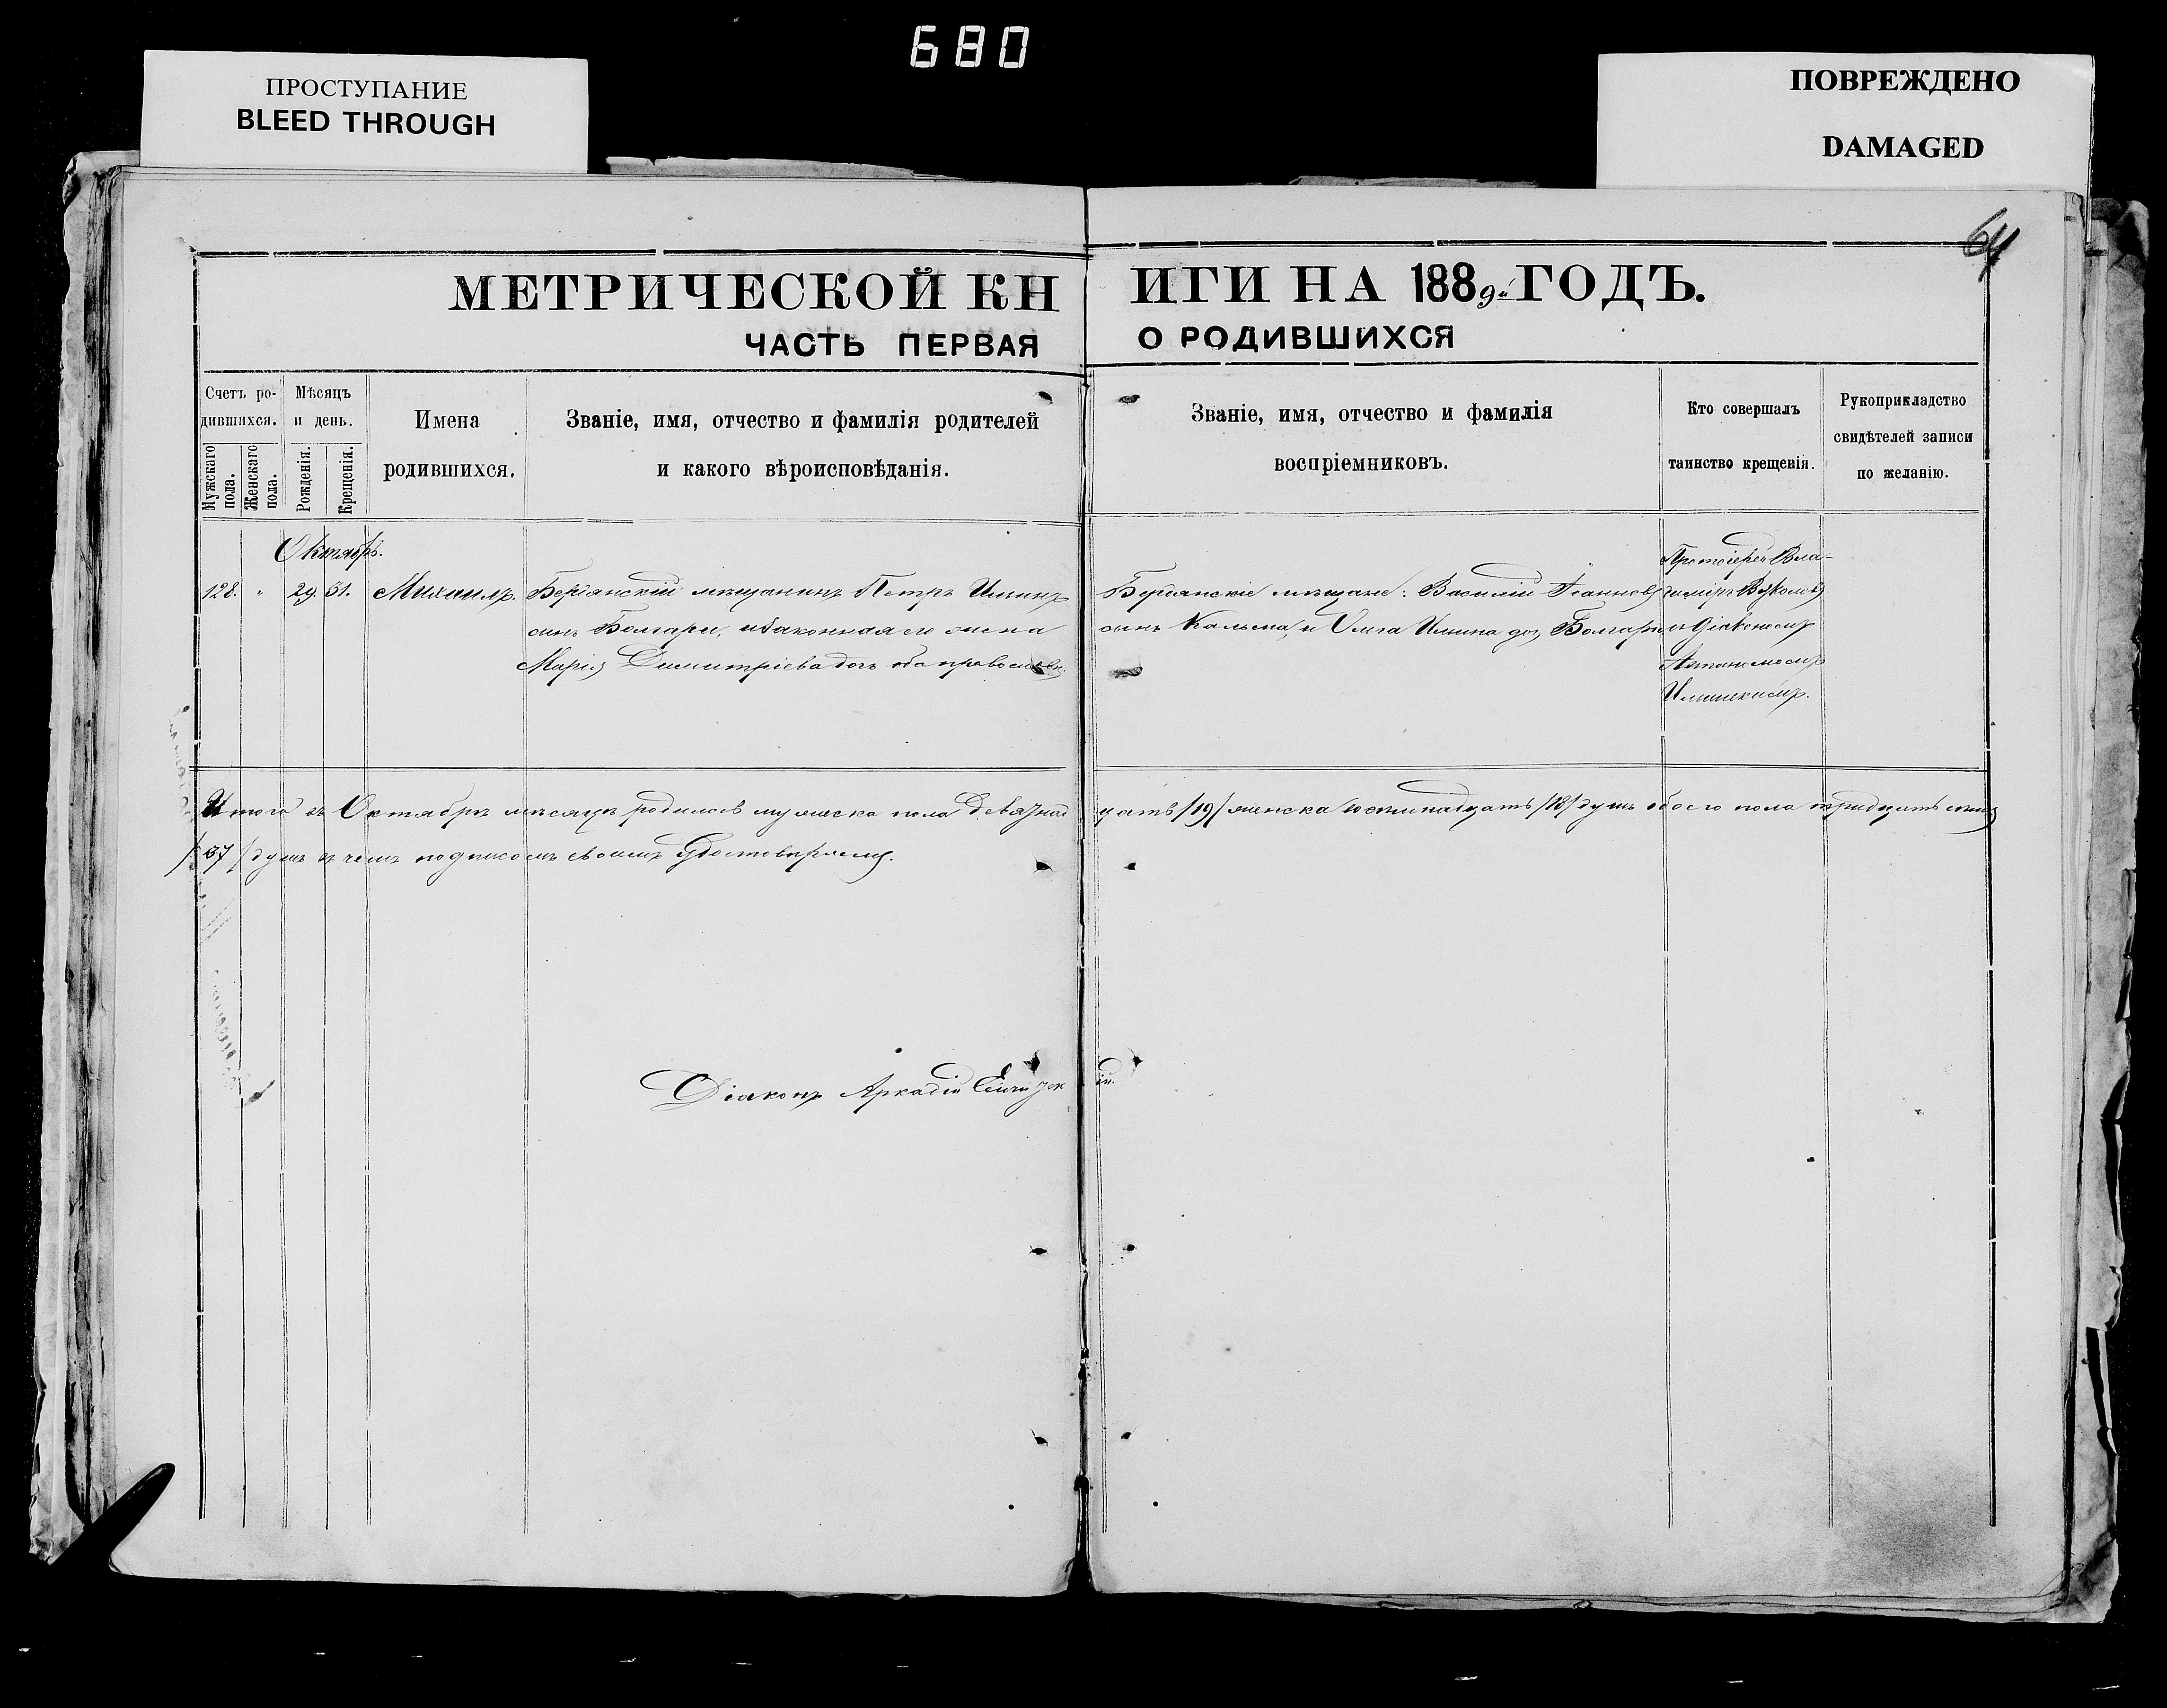 680
ПРОСТУПАНИЕ
BLEED THROUGH
ПОВРЕЖДЕНО
DAMAGED
64
МЕТРИЧЕСКОЙ КНИГИ НА 1889й ГОДЪ.
ЧАСТЬ ПЕРВАЯ О РОДИВШИХСЯ
Счетъ ро-
дившихся.
Мужскаго пола.
Женскаго пола.
Мѣсяцъ
и день.
Рожденія.
Крещенія.
Имена
родившихся.
Званіе, имя, отчество и фамилія родителей
и какого вѣроисповѣданія.
Званіе, имя, отчество и фамилія
воспріемниковъ.
Кто совершалъ
таинство крещенія.
Рукоприкладство
свидѣтелей записи
по желанію.
Октябрь.
128. " 29. 31. Михаилъ.
Бердянскій мѣщанинъ Петръ Ильинъ
сынъ Болгари, и законная его жена
Марія Димитріева дочь оба православн.
Бердянскіе мѣщане: Василій Іоанновъ
сынъ Кальма, и Ольга Ильина доч. Болгари
Протоіерей Вла-
диміръ
съ Діакономъ
Ильинскимъ.
Итого въ Октябрѣ мѣсяцѣ родилось мужеска пола девятнадцать /19/ женска восемнадцать /18/ душъ обоего пола тридцать семь
/37/ душъ въ чемъ подписомъ своимъ удостовѣряемъ.
Діаконъ Аркадій